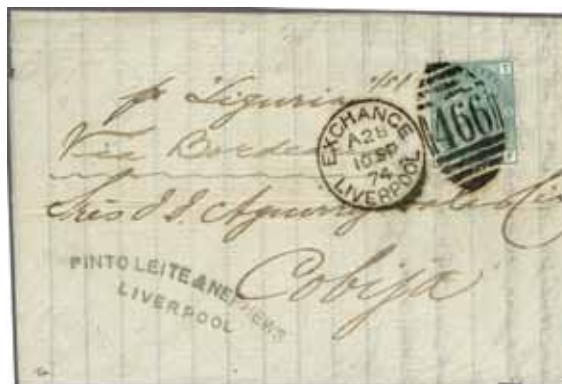 p Liguria
Via Bordeaux
EXCHANGE
A 28
10 SP
74
LIVERPOOL
466
Sres J. J. Aguirrezavala
Cobija
PINTO LEITE & NEPHEWS
LIVERPOOL